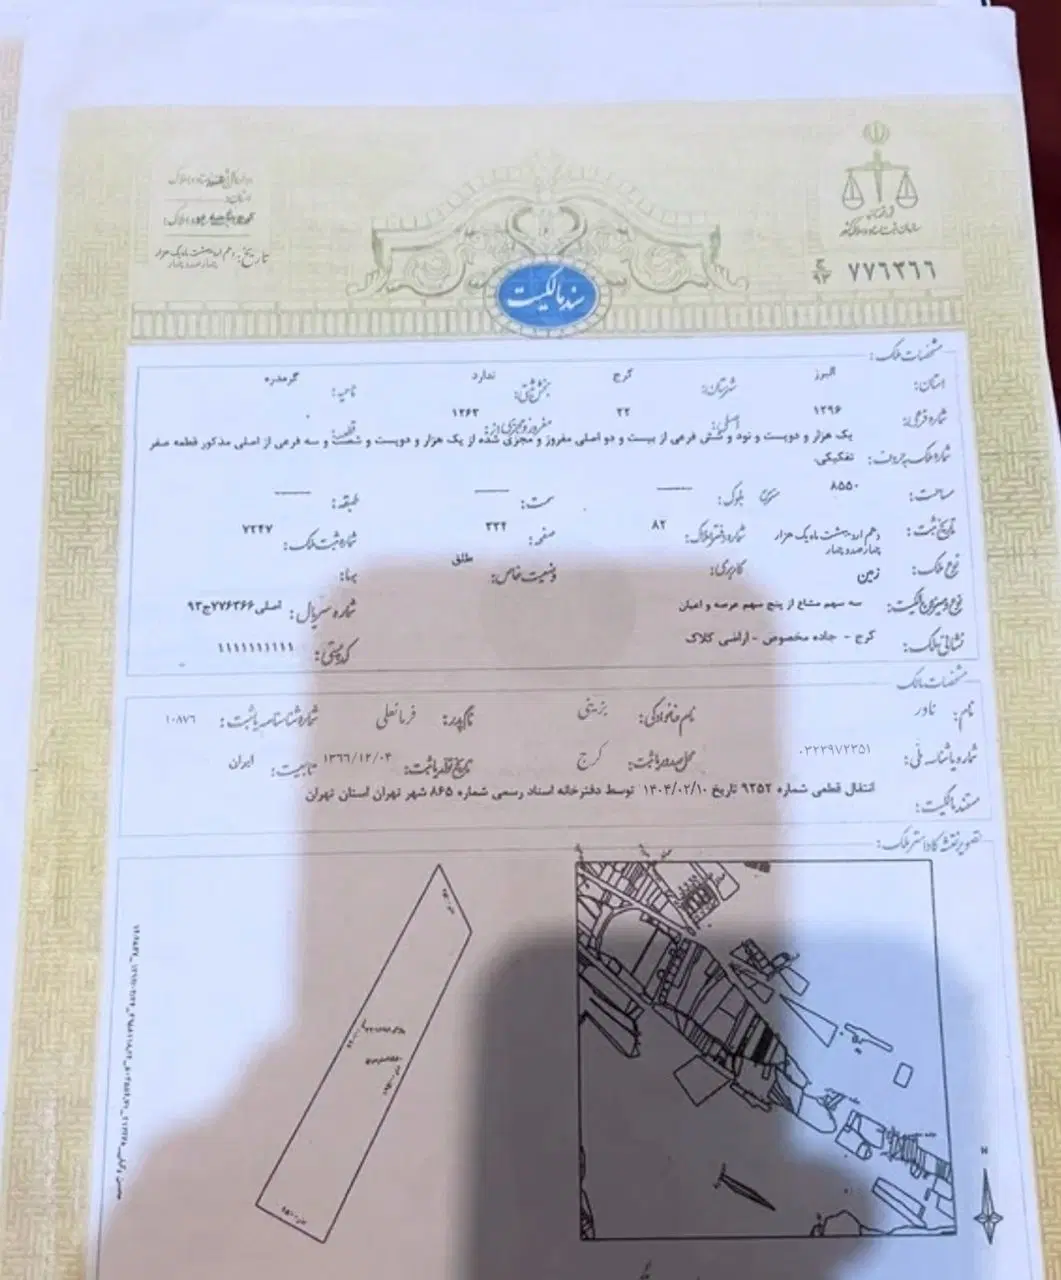 قوه قضائیه
سازمان ثبت اسناد و املاک کشور
ج
۹۳
۷۷۶۳۶۶
تاریخ: دهم اردیبهشت ماه یک هزار
چهارصد و چهار
سند مالکیت
مشخصات ملک:
استان: البرز شهرستان: کرج بخش ثبتی: ندارد ناحیه: گرمدره
شماره فرعی: ۱۲۹۶ اصلی: ۲۲ مفروز و مجزی از: ۱۲۶۳ قطعه: ۰
شماره ملک به حروف: یک هزار و دویست و نود و شش فرعی از بیست و دو اصلی مفروز و مجزی شده از یک هزار و دویست و شصت و سه فرعی از اصلی مذکور قطعه صفر
تفکیکی.
مساحت: ۸۵۵۰ مترمربع بلوک: سمت: طبقه:
تاریخ ثبت: دهم اردیبهشت ماه یک هزار چهارصد و چهار شماره دفتر املاک: ۸۲ صفحه: ۳۳۴ شماره ثبت ملک: ۷۲۴۷
نوع ملک: زمین کاربری: وضعیت خاص: طلق بهاء:
نوع و میزان مالکیت: سه سهم مشاع از پنج سهم عرصه و اعیان شماره سریال: اصلی۷۷۶۳۶۶ج۹۳
نشانی ملک: کرج - جاده مخصوص - اراضی کلاک کد پستی: ۱۱۱۱۱۱۱۱۱۱
مشخصات مالک
نام: نادر نام خانوادگی: بزینی نام پدر: فرمانعلی شماره شناسنامه یا ثبت: ۱۰۸۷۶
شماره یا شناسه ملی: ۰۳۲۳۹۷۲۳۵۱ محل صدور یا ثبت: کرج تاریخ تولد یا ثبت: ۱۳۶۶/۱۲/۰۴ تابعیت: ایران
مستند مالکیت: انتقال قطعی شماره ۹۲۵۲ تاریخ ۱۴۰۴/۰۲/۱۰ توسط دفترخانه اسناد رسمی شماره ۸۶۵ شهر تهران استان تهران
تصویر نقشه کاداستر ملک:
N